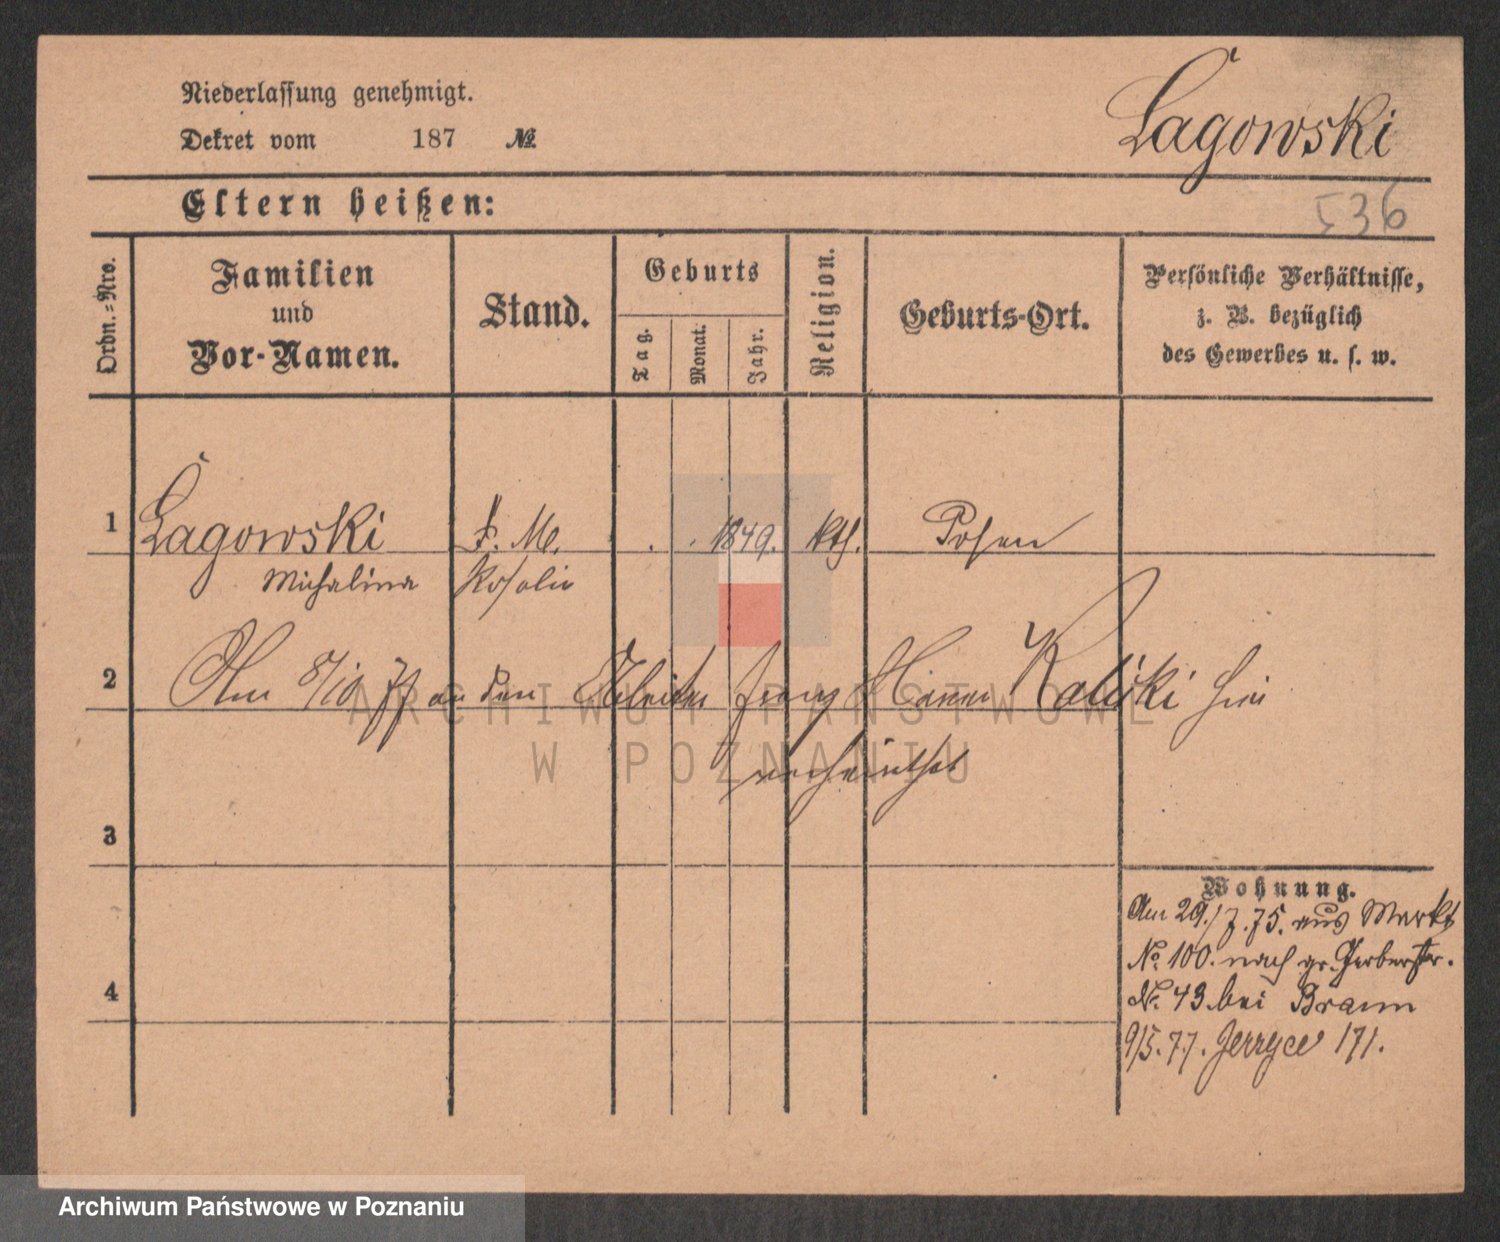 Niederlassung genehmigt.
Dekret vom 187 №
Łagowski
Eltern heißen:
536
Ordn.-Nro.
Familien
und
Vor-Namen.
Stand.
Geburts
Tag.
Monat.
Jahr.
Religion.
Geburts-Ort.
Persönliche Verhältnisse,
z. B. bezüglich
des Gewerbes u. s. w.
1 Łagowski M. 1849. kth. Posen
Michalina Rosalie
2 Am 8/10 77 an den Arbeiter Franz Kaliski hier
verheirathet
3
Wohnung.
Am 29./7.75. aus Markt
No. 100. nach gr. Gerberstr.
No. 43 bei Braun
4
9/5.77. Jerzyce 171.
ARCHIWUM PAŃSTWOWE
W POZNANIU
Archiwum Państwowe w Poznaniu